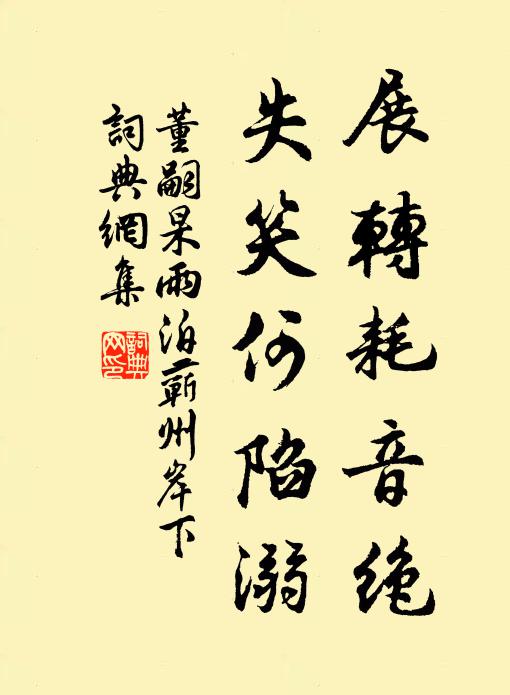 展轉耗音絶
失笑何陷溺
董嗣杲雨泊蘄州岸下
詞典網集
詞典
网印